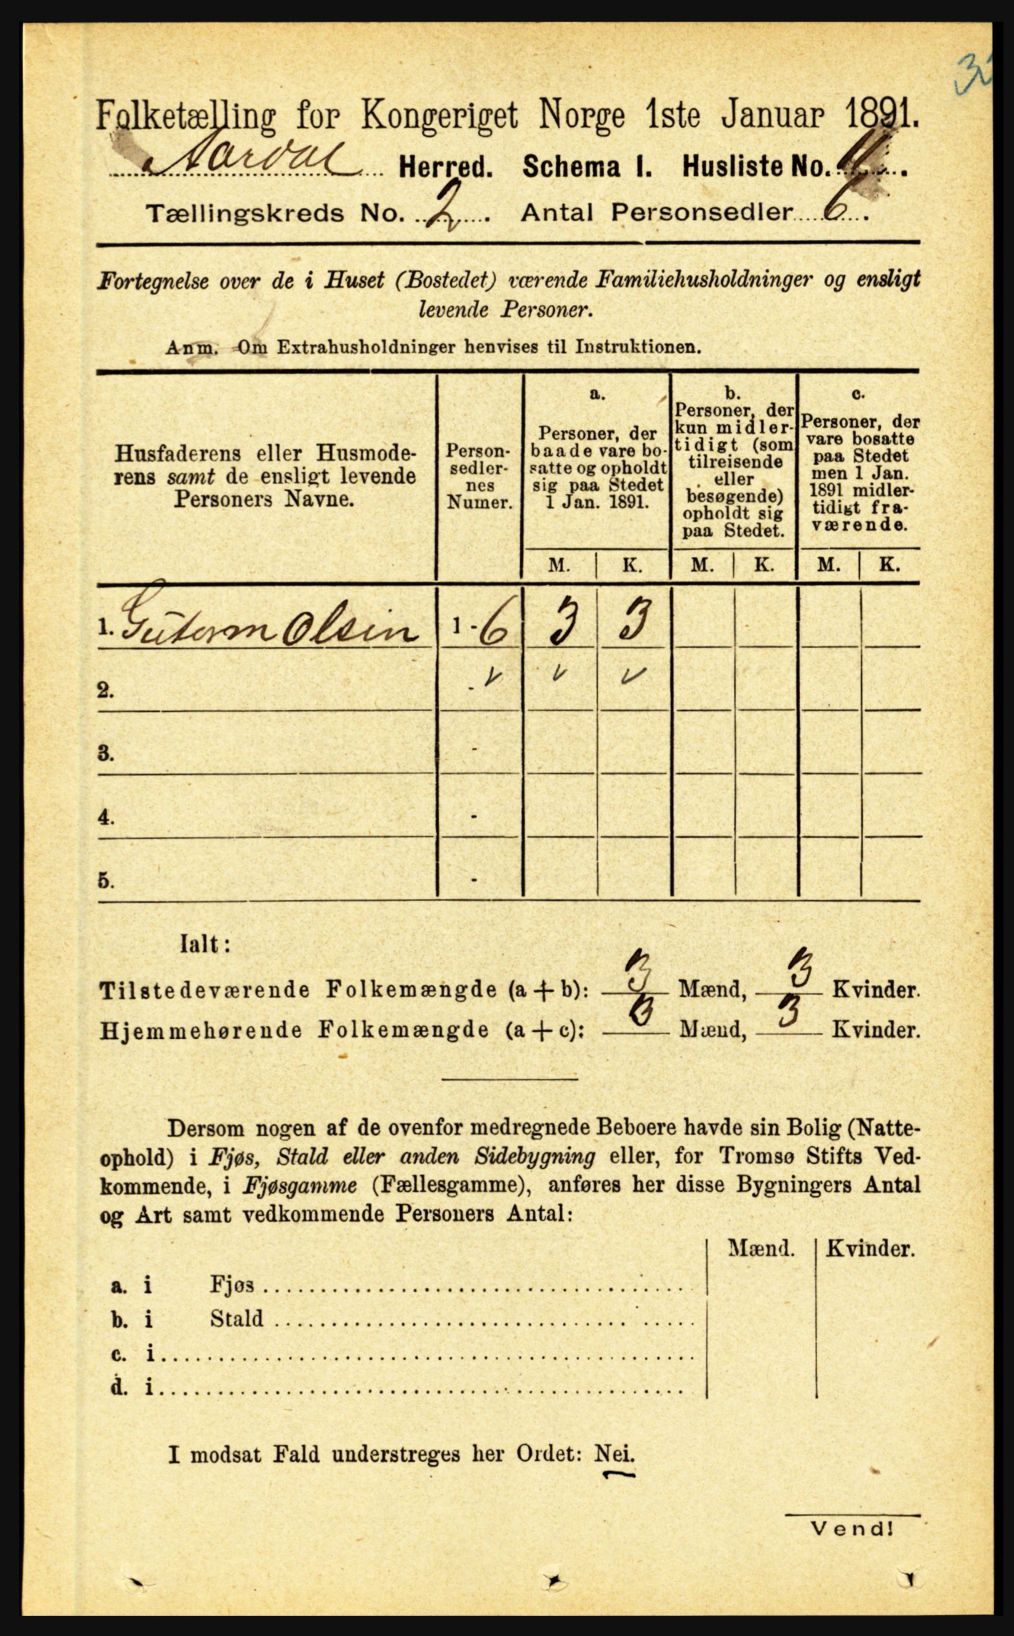 Folketælling for Kongeriget Norge 1ste Januar 1891.
Aardal Herred. Schema I. Husliste No.
Tællingskreds No. 2. Antal Personsedler 6.
Fortegnelse over de i Huset (Bostedet) værende Familiehusholdninger og ensligt
levende Personer.
Anm. Om Extrahusholdninger henvises til Instruktionen.
Husfaderens eller Husmode-
rens samt de ensligt levende
Personers Navne.
Person-
sedler-
nes
Numer.
a.
Personer, der
baade vare bo-
satte og opholdt
sig paa Stedet
1 Jan. 1891.
b.
Personer, der
kun midler-
tidigt (som
tilreisende
eller
besøgende)
opholdt sig
paa Stedet.
c.
Personer, der
vare bosatte
paa Stedet
men 1 Jan.
1891 midler-
tidigt fra-
værende.
M. K. M. K. M. K.
1. Guterm Olsen 1 - 6 3 3
2. -
3. -
4. -
5. -
Ialt:
Tilstedeværende Folkemængde (a + b): 3 Mænd, 3 Kvinder.
Hjemmehørende Folkemængde (a + c): 3 Mænd, 3 Kvinder.
Dersom nogen af de ovenfor medregnede Beboere havde sin Bolig (Natte-
ophold) i Fjøs, Stald eller anden Sidebygning eller, for Tromsø Stifts Ved-
kommende, i Fjøsgamme (Fællesgamme), anføres her disse Bygningers Antal
og Art samt vedkommende Personers Antal:
Mænd. Kvinder.
a. i Fjøs
b. i Stald
c. i
d. i
I modsat Fald understreges her Ordet: Nei.
Vend!